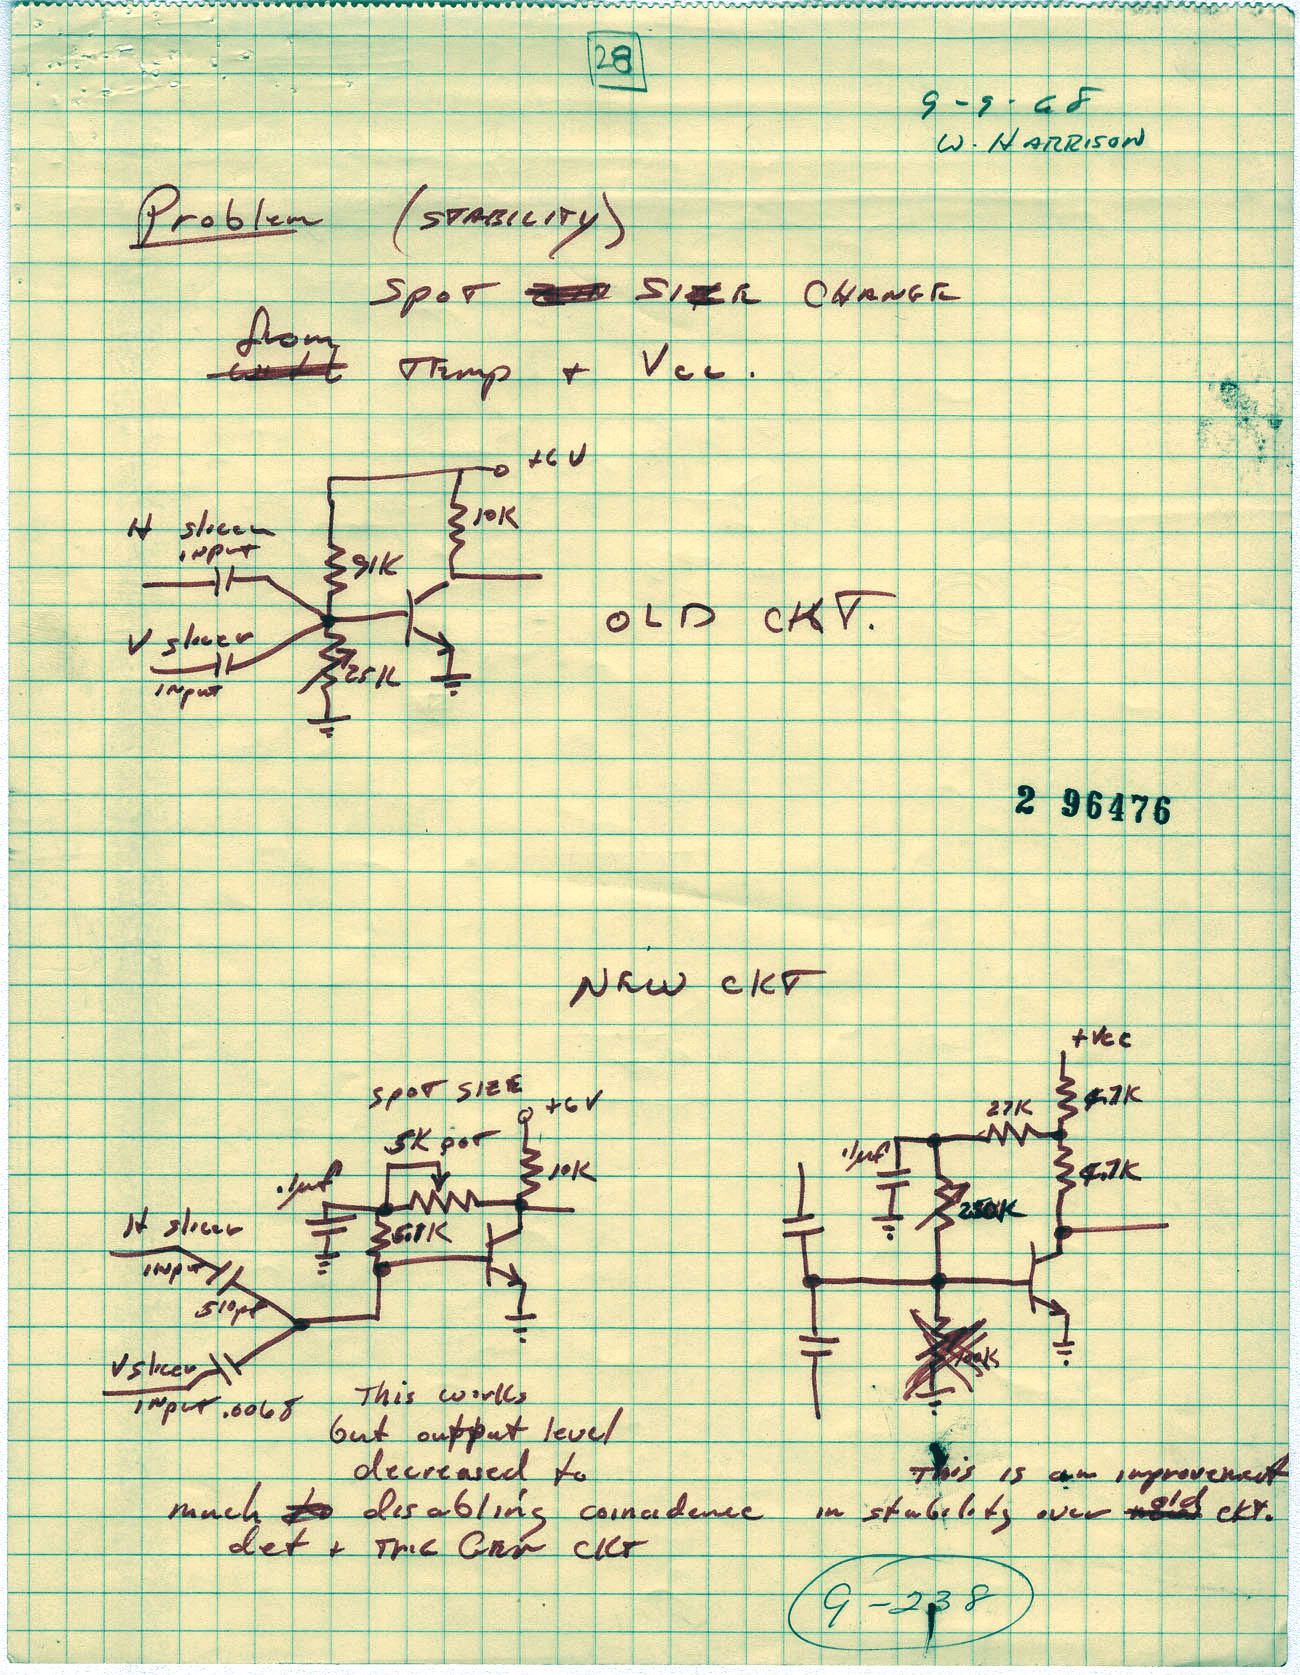 28
9-9-68
W. HARRISON
Problem (STABILITY)
SPOT SIZE CHANGE
from TEMP + Vcc.
+6V
10K
H slicer
INPUT
91K
V slicer
INPUT
25K
OLD CKT.
2 96476
NEW CKT
SPOT SIZE
+6V
5K pot
10K
.1μf
H slicer
INPUT
510pf
V slicer
INPUT .0068
+Vcc
4.7K
27K
.1μf
4.7K
250K
100K
This works
but output level
decreased to
much disabling coinadence
det + THE
CKT
This is an improvement
in stability over old CKT.
G-238